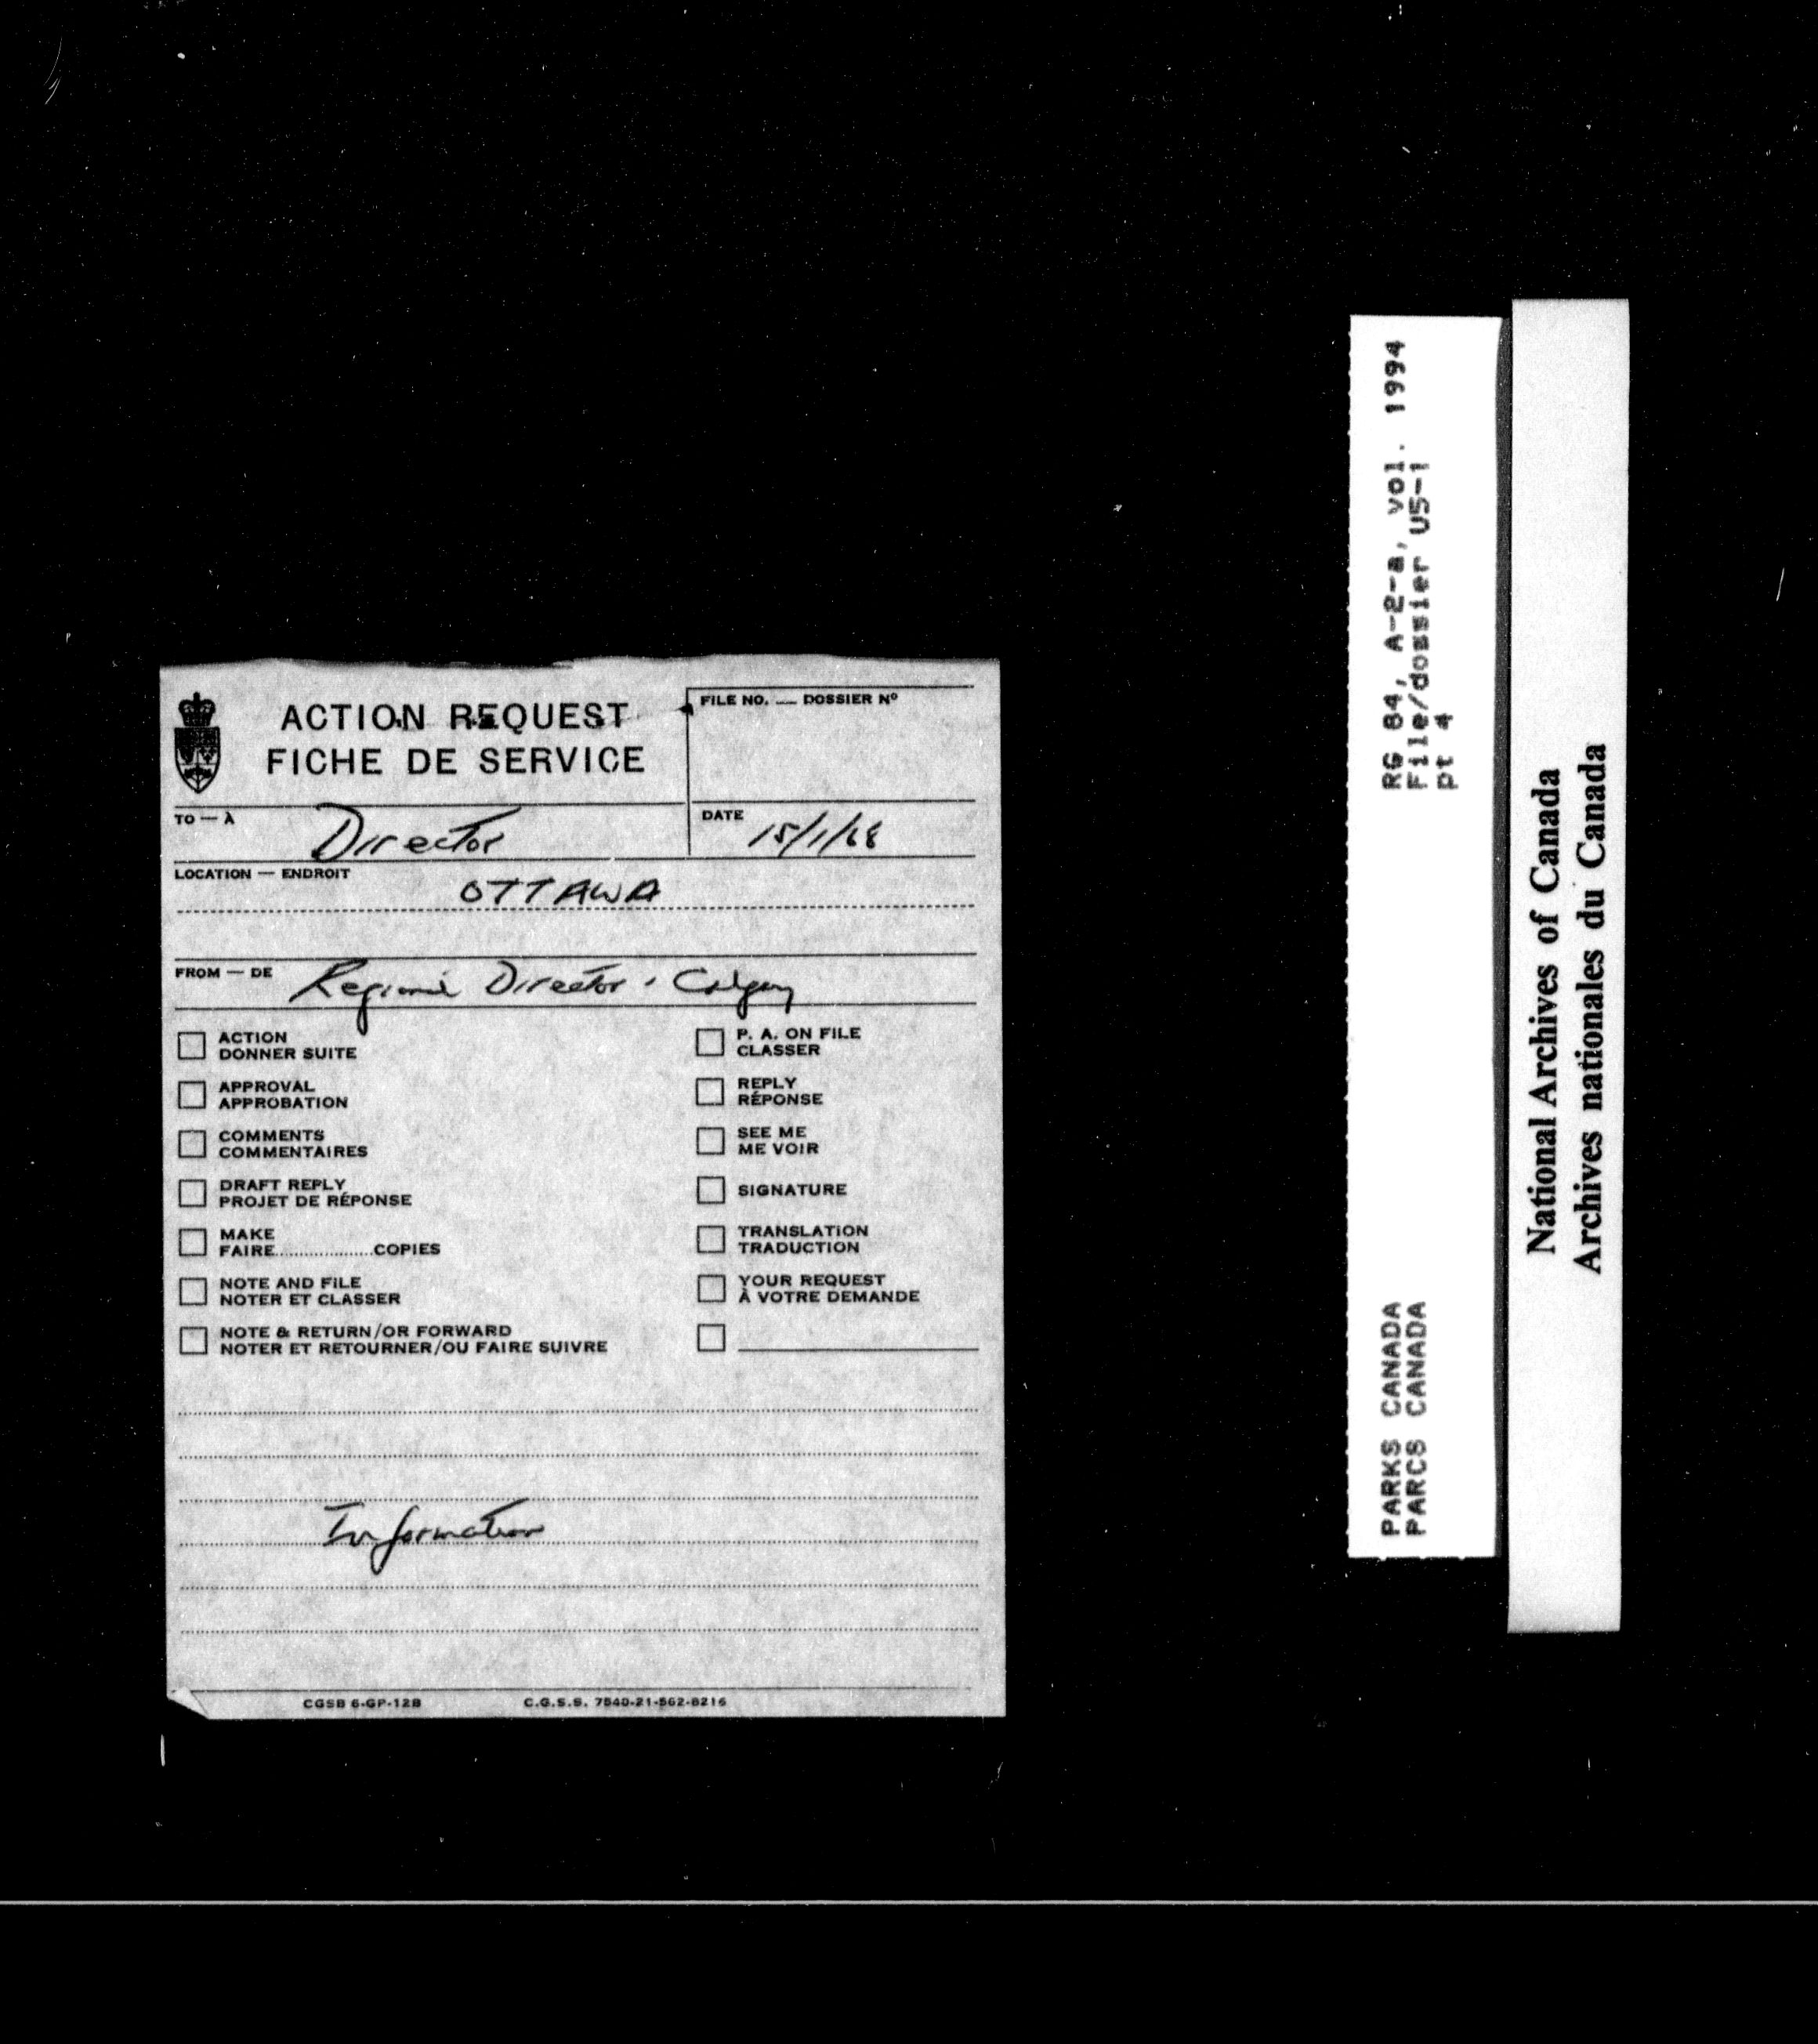 ACTION REQUEST
FICHE DE SERVICE
FILE NO. — DOSSIER Nº
TO — À Director
DATE 15/1/68
LOCATION — ENDROIT
OTTAWA
FROM — DE Regional Director, Calgary
ACTION
DONNER SUITE
APPROVAL
APPROBATION
COMMENTS
COMMENTAIRES
DRAFT REPLY
PROJET DE RÉPONSE
MAKE
FAIRE....................COPIES
NOTE AND FILE
NOTER ET CLASSER
NOTE & RETURN/OR FORWARD
NOTER ET RETOURNER/OU FAIRE SUIVRE
P. A. ON FILE
CLASSER
REPLY
RÉPONSE
SEE ME
ME VOIR
SIGNATURE
TRANSLATION
TRADUCTION
YOUR REQUEST
À VOTRE DEMANDE
Information
CGSB 6-GP-12B C.G.S.S. 7540-21-562-8216
PARKS CANADA RG 84, A-2-a, vol. 1994
PARCS CANADA File/dossier U5-1
pt 4
National Archives of Canada
Archives nationales du Canada